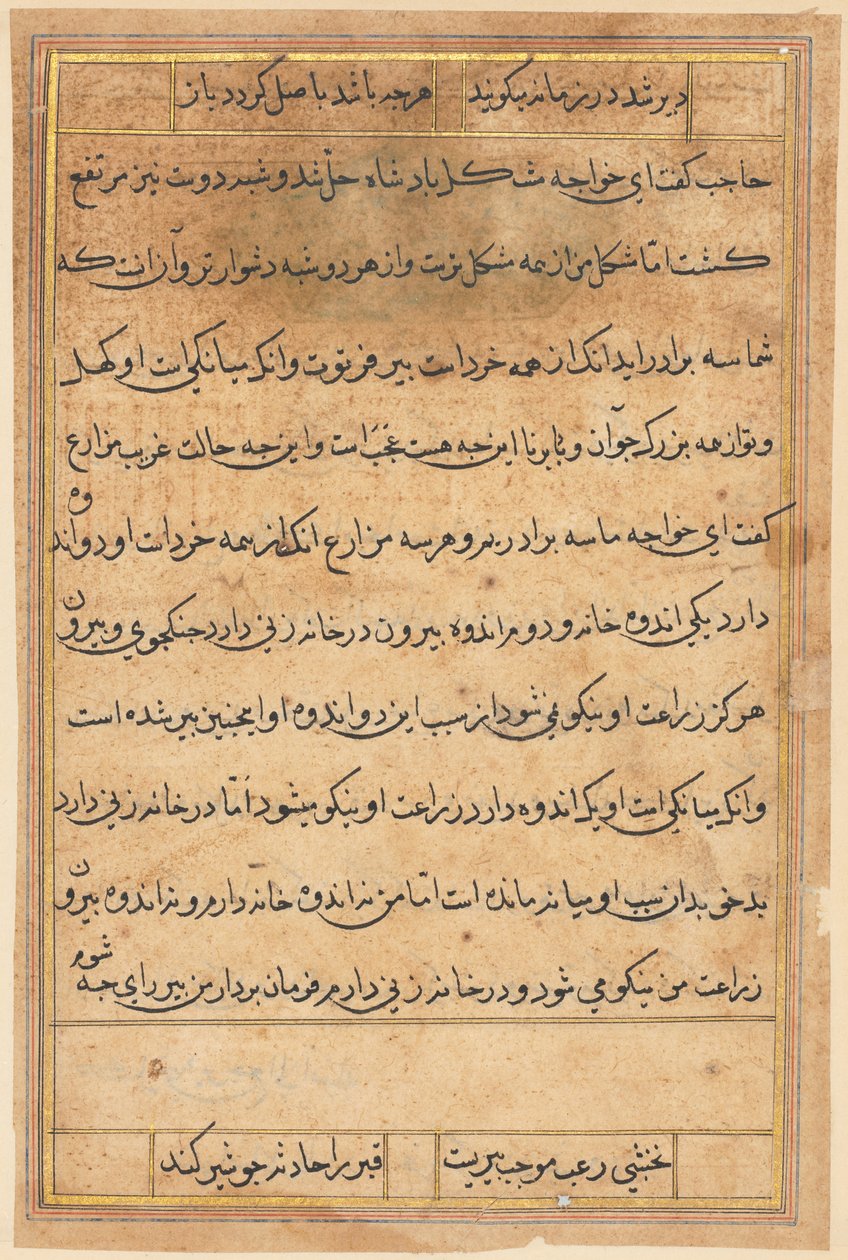 دیر شد در زمانه میکویند هرچه باشد باصل کردد باز
حاجب کفت ای خواجه مشکل بادشاه حلّ شد و شبه دوست نیز مرتفع
کشت امّا مشکل من از همه مشکل ترست و از هر دو شبه دشوارتر و آن انست که
شما سه برادراید انک از همه خرداست بیر فرتوت وانکه میانکی است او کهل
و تو از همه بزرک جوآن و بابرنا این چه هست عَجَب است و این چه حالت غریب مزارع
کفت ای خواجه ما سه برادریم و هر سه مزارع انک از همه خرداست او دو اندوه
دارد یکی اندوه خانه و دوم اندوه بیرون در خانه زنی دارد جنکجوی و بیرون
هرکز زراعت او نیکو نمی شود از سبب این دو اندوه او این چنین بیر شده است
وانکه میانکی است او یک اندوه دارد زراعت او نیکو میشود اَمّا در خانه زنی دارد
بدخو بدان سبب او میانه مانده است امّا من نه اندوه خانه دارم و نه اندوه بیرون
زراعت من نیکو می شود و در خانه زنی دارم فرمان بردار من بیر رای چه شوم
نخشبی رعب موجب بیریست قیر را حادثه چو شیر کند